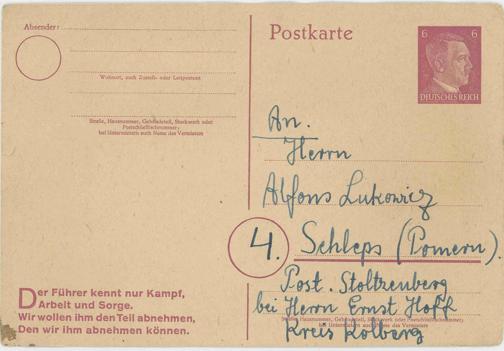 Absender:
Wohnort, auch Zustell- oder Leitpostamt
Straße, Hausnummer, Gebäudeteil, Stockwerk oder
Postschließfachnummer;
bei Untermietern auch Name des Vermieters
Der Führer kennt nur Kampf,
Arbeit und Sorge.
Wir wollen ihm den Teil abnehmen,
Den wir ihm abnehmen können.
Postkarte
6 6
DEUTSCHES REICH
An.
Herrn
Alfons Lukowicz
4. Schleps (Pomern).
Post. Stoltzenberg
bei Herrn Ernst Hoff
Straße, Hausnummer, Gebäudeteil, Stockwerk oder Postschließfachnummer;
bei Untermietern auch Name des Vermieters
Kreis Kolberg